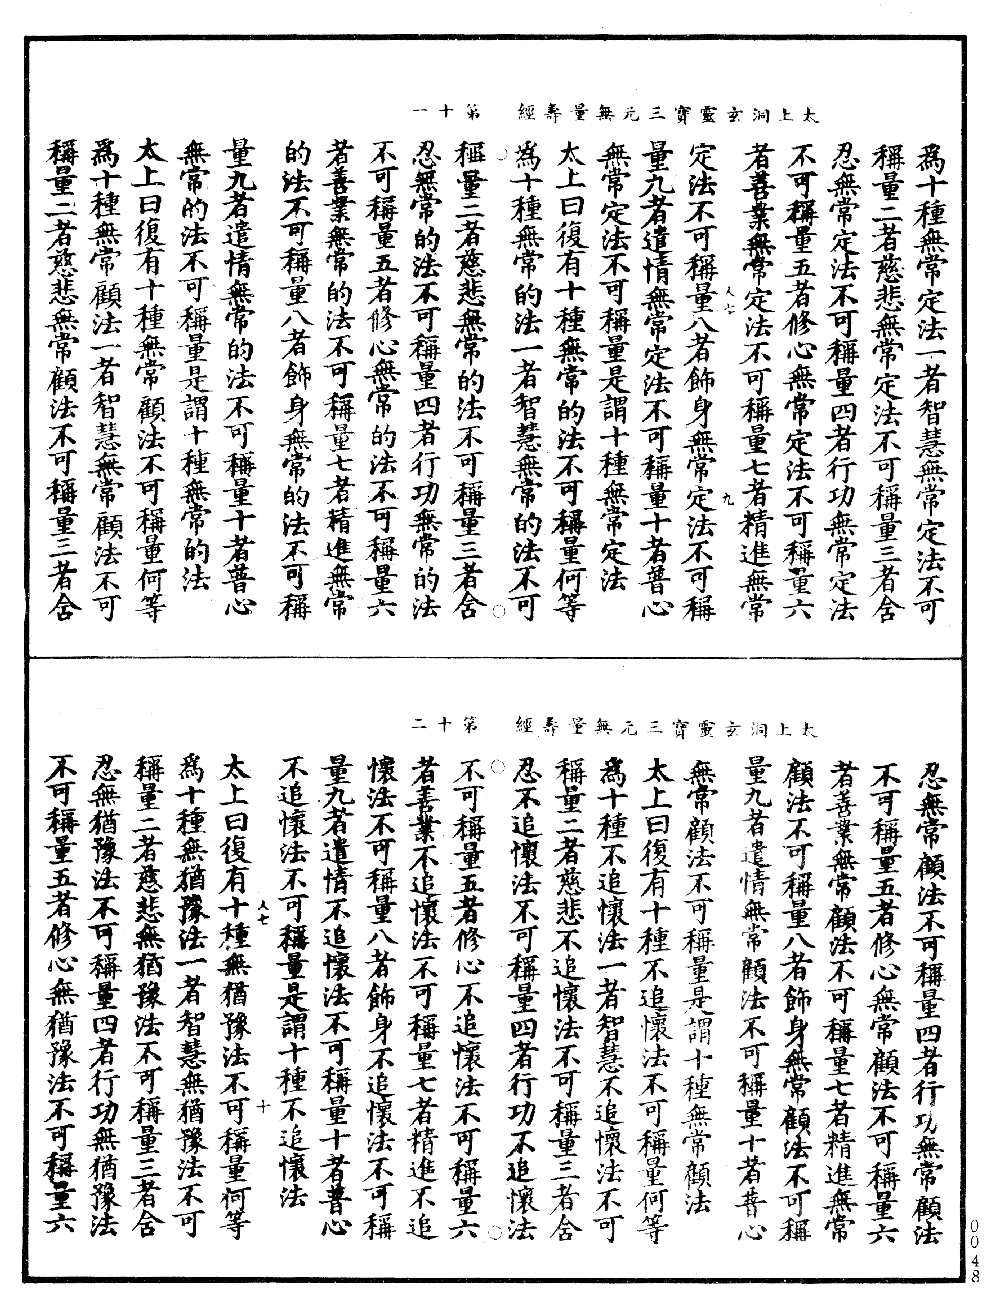 太上洞玄靈寶三元無量壽經　第十一
爲十種無常定法一者智慧無常定法不可
稱量二者慈悲無常定法不可稱量三者舍
忍無常定法不可稱量四者行功無常定法
不可稱量五者修心無常定法不可稱量六
者善業無常定法不可稱量七者精進無常
人七　九
定法不可稱量八者飾身無常定法不可稱
量九者遣情無常定法不可稱量十者普心
無常定法不可稱量是謂十種無常定法
太上曰復有十種無常的法不可稱量何等
爲十種無常的法一者智慧無常的法不可
稱量二者慈悲無常的法不可稱量三者舍
忍無常的法不可稱量四者行功無常的法
不可稱量五者修心無常的法不可稱量六
者善業無常的法不可稱量七者精進無常
的法不可稱量八者飾身無常的法不可稱
量九者遣情無常的法不可稱量十者普心
無常的法不可稱量是謂十種無常的法
太上曰復有十種無常顧法不可稱量何等
爲十種無常顧法一者智慧無常顧法不可
稱量二者慈悲無常顧法不可稱量三者舍
太上洞玄靈寶三元無量壽經　第十二
忍無常顧法不可稱量四者行功無常顧法
不可稱量五者修心無常顧法不可稱量六
者善業無常顧法不可稱量七者精進無常
顧法不可稱量八者飾身無常顧法不可稱
量九者遣情無常顧法不可稱量十者普心
無常顧法不可稱量是謂十種無常顧法
太上曰復有十種不追懷法不可稱量何等
爲十種不追懷法一者智慧不追懷法不可
稱量二者慈悲不追懷法不可稱量三者舍
忍不追懷法不可稱量四者行功不追懷法
不可稱量五者修心不追懷法不可稱量六
者善業不追懷法不可稱量七者精進不追
懷法不可稱量八者飾身不追懷法不可稱
量九者遣情不追懷法不可稱量十者普心
不追懷法不可稱量是謂十種不追懷法
人七　十
太上曰復有十種無猶豫法不可稱量何等
爲十種無猶豫法一者智慧無猶豫法不可
稱量二者慈悲無猶豫法不可稱量三者舍
忍無猶豫法不可稱量四者行功無猶豫法
不可稱量五者修心無猶豫法不可稱量六
0048